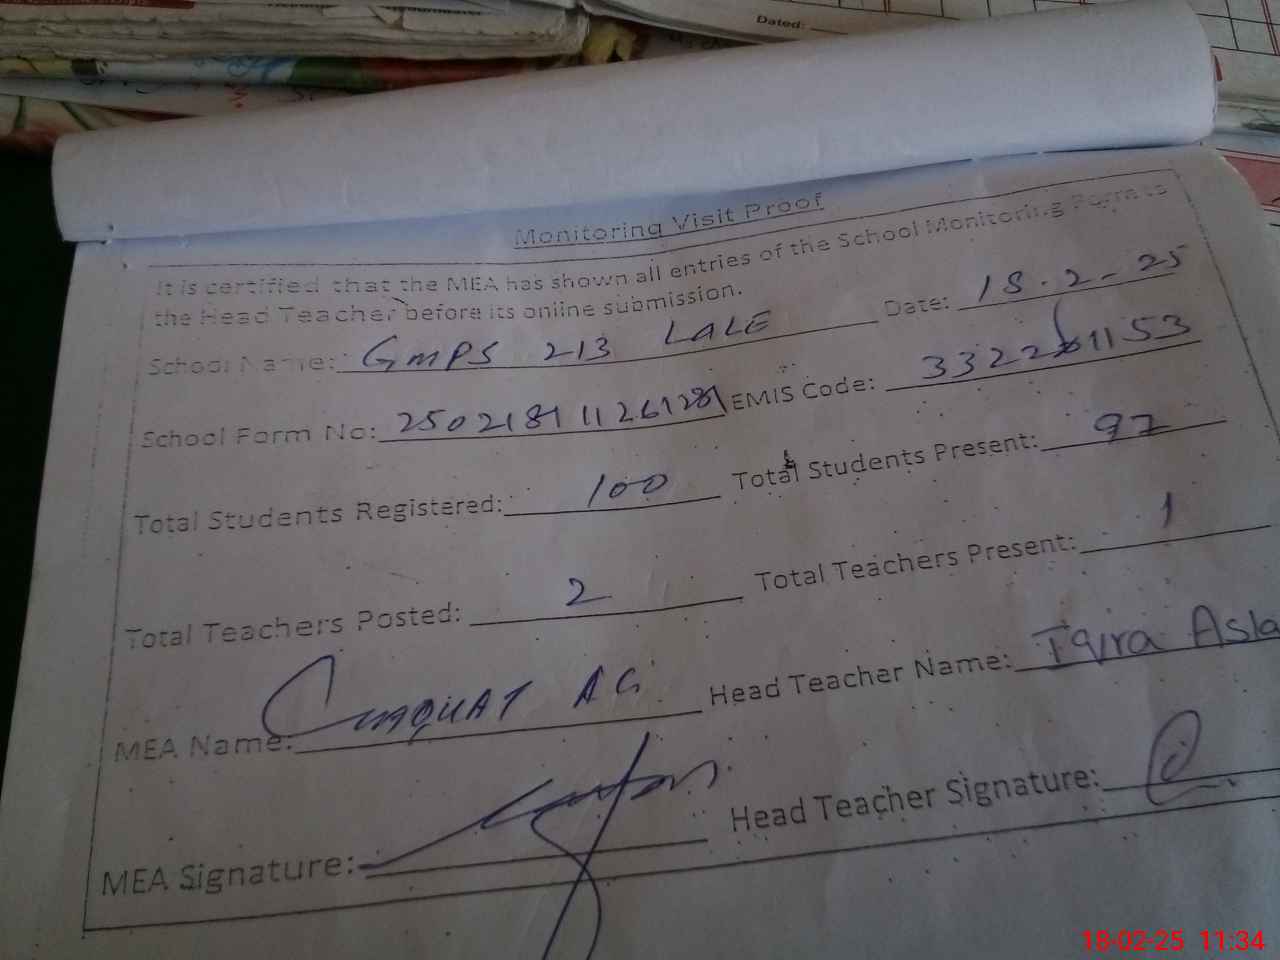 Dated:
Monitoring Visit Proof
It is certified that the MEA has shown all entries of the School Monitoring Form to
the Head Teacher before its online submission.
School Name: GMPS 213 LALE Date: 18.2-25
School Form No: EMIS Code:
Total Students Registered: 100 Total Students Present: 97
Total Teachers Posted: 2 Total Teachers Present: 1
MEA Name: Head Teacher Name: Iqra Asla
MEA Signature: Head Teacher Signature:
18-02-25 11:34